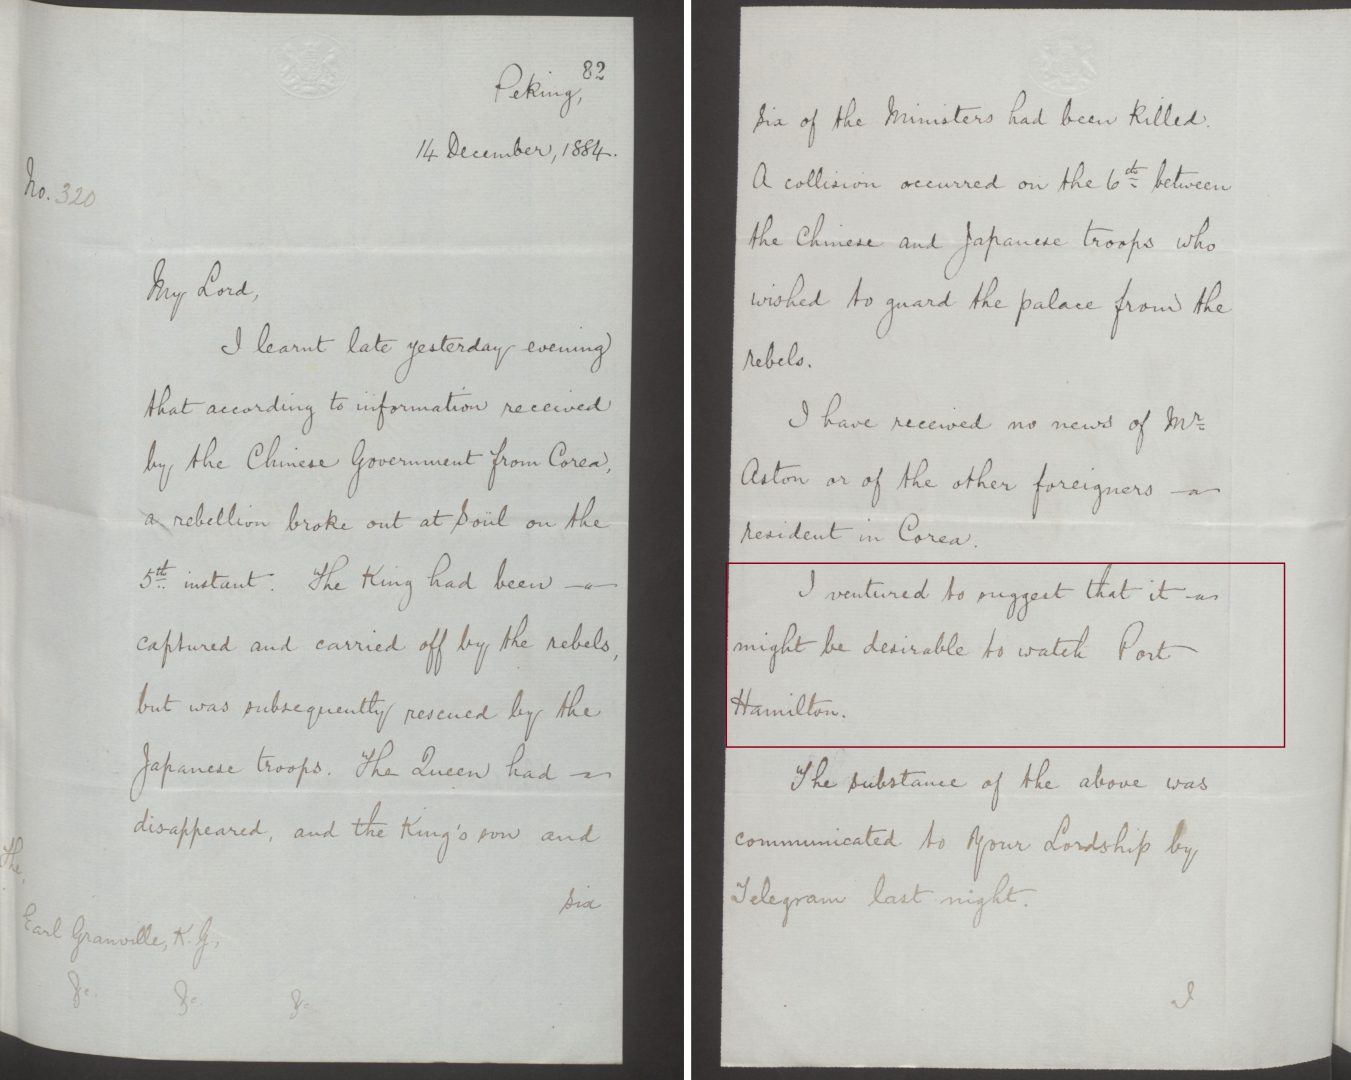 82
Peking,
14 December, 1884.
No. 320
My Lord,
I learnt late yesterday evening
that according to information received
by the Chinese Government from Corea,
a rebellion broke out at Söul on the
5th instant. The King had been
captured and carried off by the rebels,
but was subsequently rescued by the
Japanese troops. The Queen had
disappeared, and the King's son and
six
The
Earl Granville, K.G.,
&c. &c. &c.
six of the Ministers had been killed.
A collision occurred on the 6th between
the Chinese and Japanese troops who
wished to guard the palace from the
rebels.
I have received no news of Mr
Aston or of the other foreigners
resident in Corea.
I ventured to suggest that it
might be desirable to watch Port
Hamilton.
The substance of the above was
communicated to Your Lordship by
Telegram last night.
I